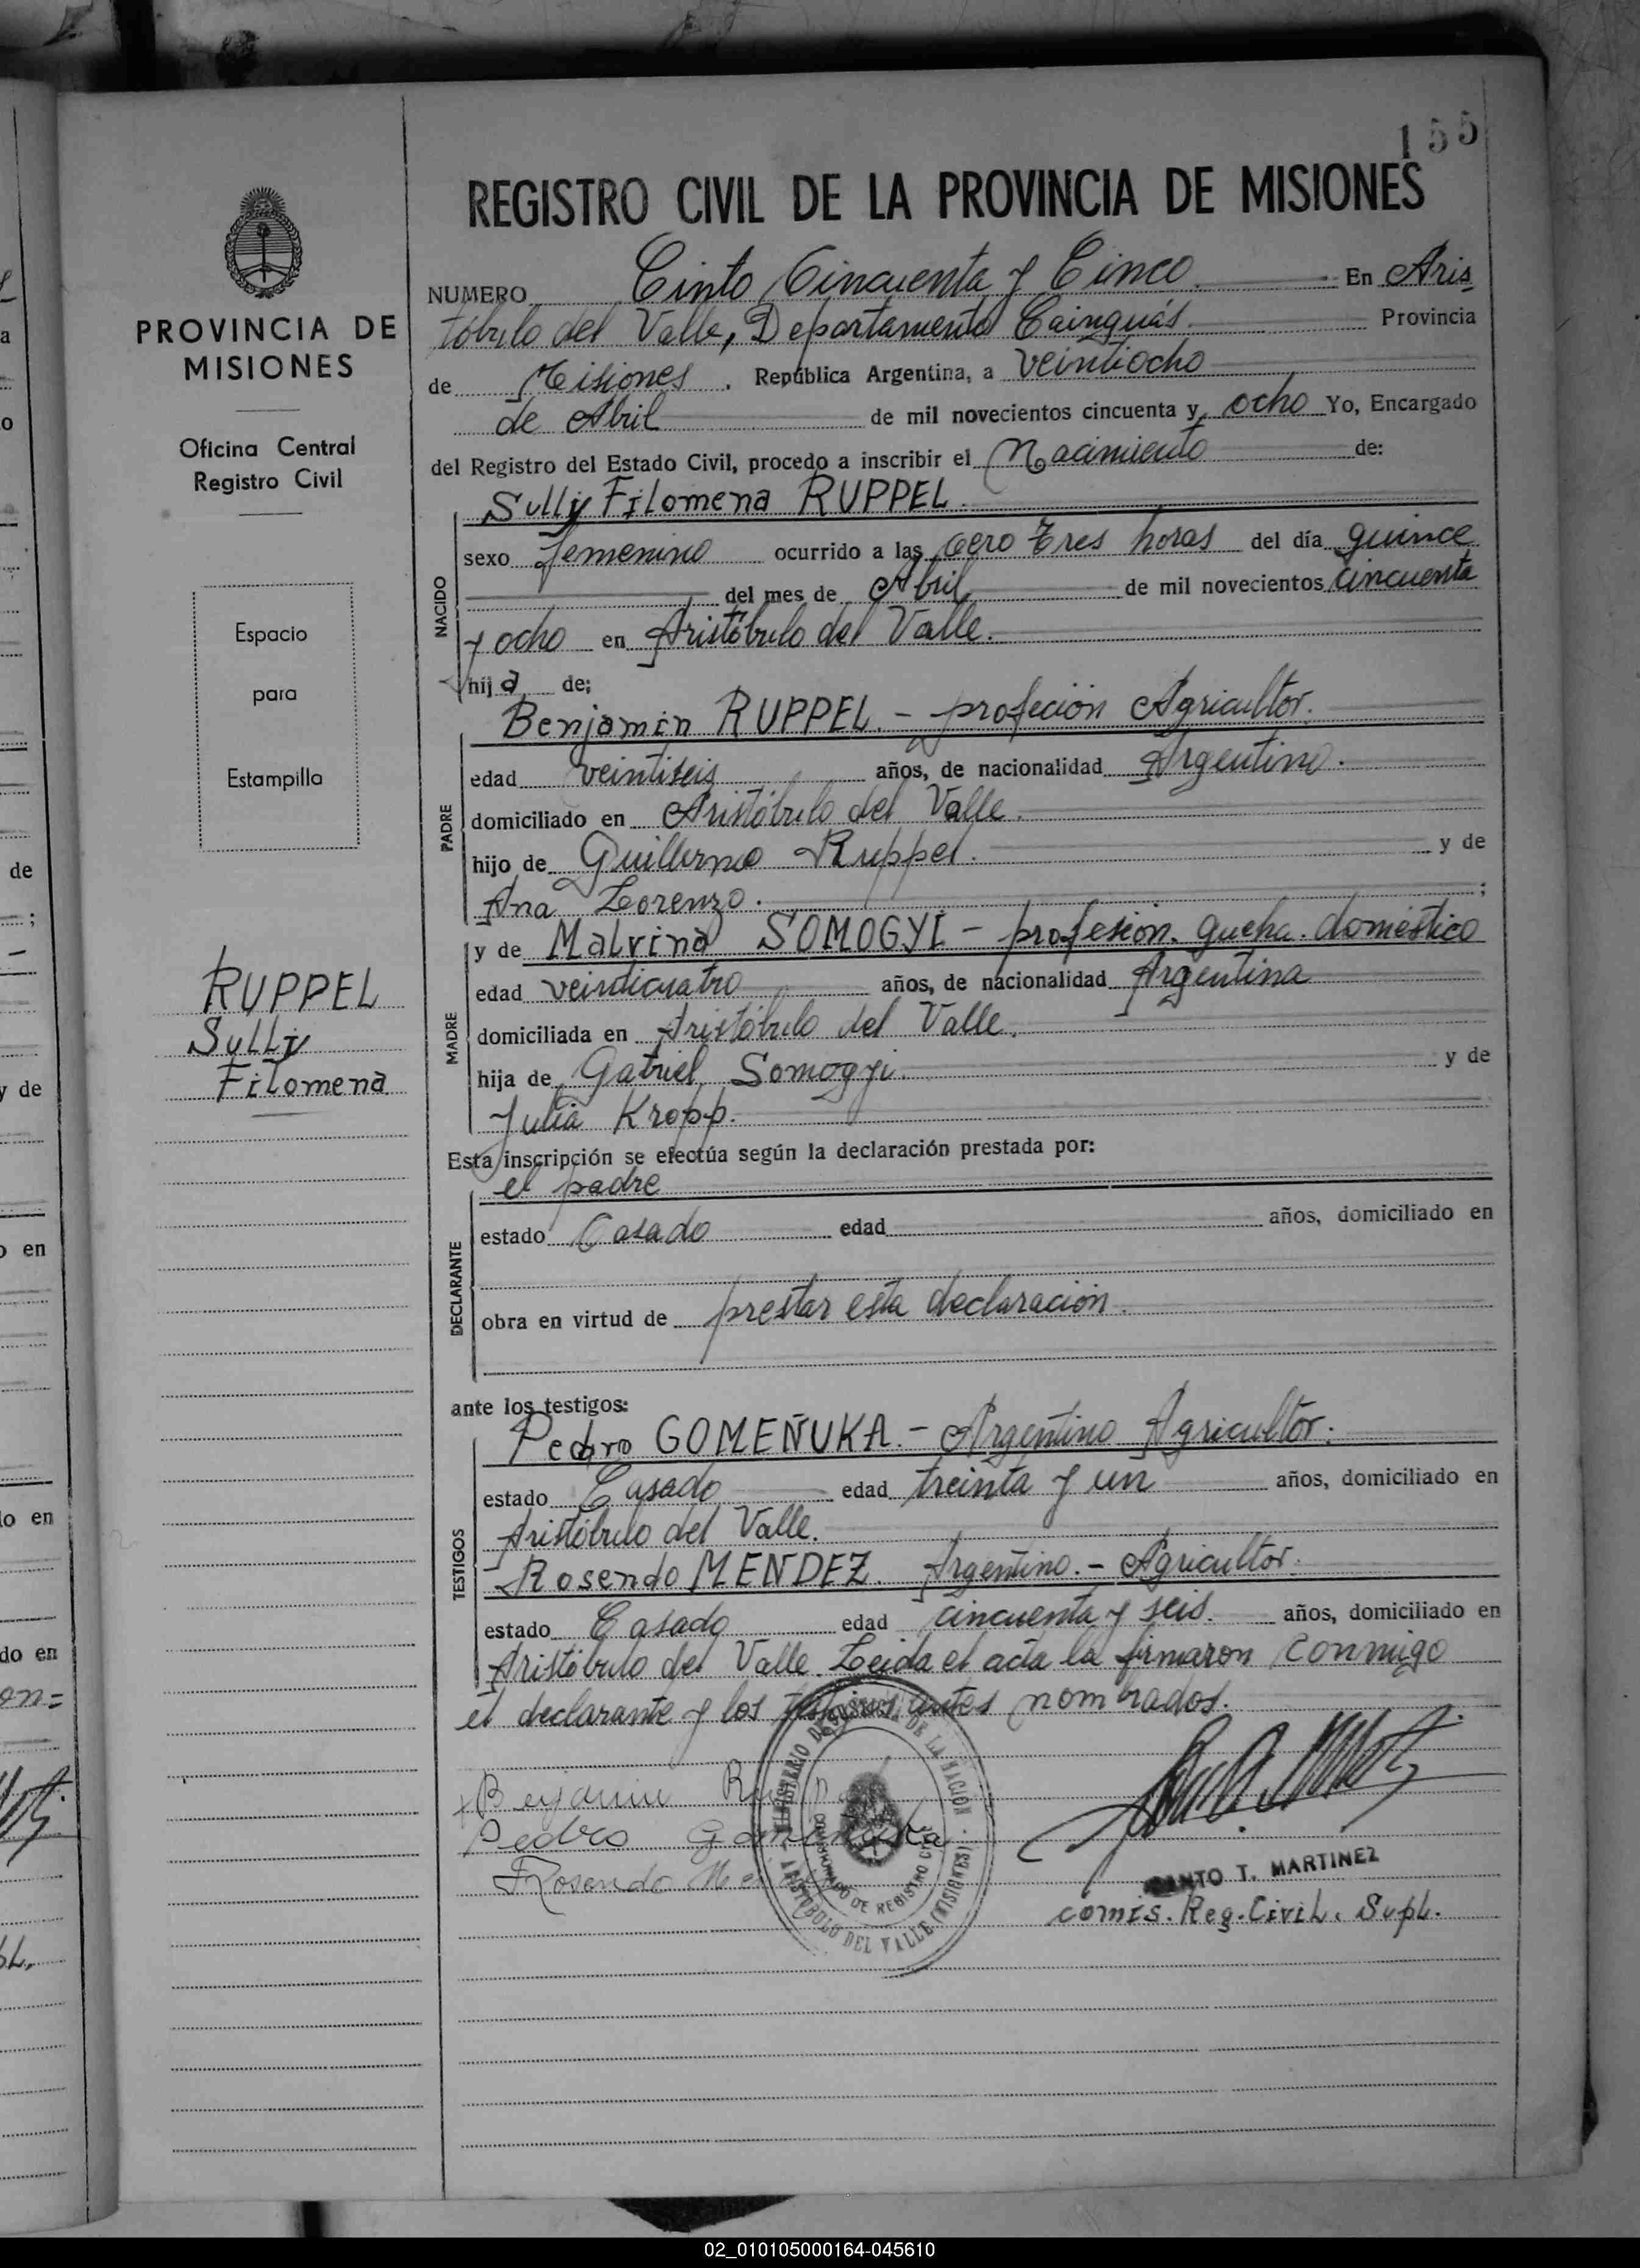 155
REGISTRO CIVIL DE LA PROVINCIA DE MISIONES
PROVINCIA DE
MISIONES
Oficina Central
Registro Civil
Espacio
para
Estampilla
RUPPEL
Sully
Filomena
NUMERO Cinto Cincuenta y Cinco. En Aris-
tóbulo del Valle, Departamento Cainguás. Provincia
de Misiones. República Argentina, a veintiocho
de Abril de mil novecientos cincuenta y ocho Yo, Encargado
del Registro del Estado Civil, procedo a inscribir el Nacimiento de:
Sully Filomena RUPPEL.
NACIDO
sexo femenino ocurrido a las cero tres horas del día quince
del mes de Abril de mil novecientos cincuenta
y ocho en Aristóbulo del Valle.
hija de:
Benjamin RUPPEL. - profeción Agricultor.
PADRE
edad veintiseis años, de nacionalidad Argentino.
domiciliado en Aristóbulo del Valle.
hijo de Guillermo Ruppel. y de
Ana Lorenzo. ;
y de Malvina SOMOGYI - profesión. doméstico
MADRE
edad veinticuatro años, de nacionalidad Argentina
domiciliada en Aristóbulo del Valle.
hija de Gabriel Somogyi. y de
Julia Kropp.
Esta inscripción se efectúa según la declaración prestada por:
el padre
DECLARANTE
estado Casado edad años, domiciliado en
obra en virtud de prestar esta declaración.
ante los testigos:
Pedro GOMEÑUKA. - Argentino Agricultor.
TESTIGOS
estado Casado edad treinta y un años, domiciliado en
Aristóbulo del Valle.
Rosendo MENDEZ. Argentino. - Agricultor.
estado Casado edad cincuenta y seis. años, domiciliado en
Aristóbulo del Valle. Leida el acta la firmaron conmigo
el declarante y los testigos antes nombrados.
Benjamin
Pedro
Rosendo
MINISTERIO DE DE LA NACIÓN
ARISTOBULO DEL VALLE (MISIONES)
DE REGISTRO
T. MARTINEZ
comis. Reg. Civil. Supl.
de
;
y de
en
lo en
do en
02_010105000164-045610